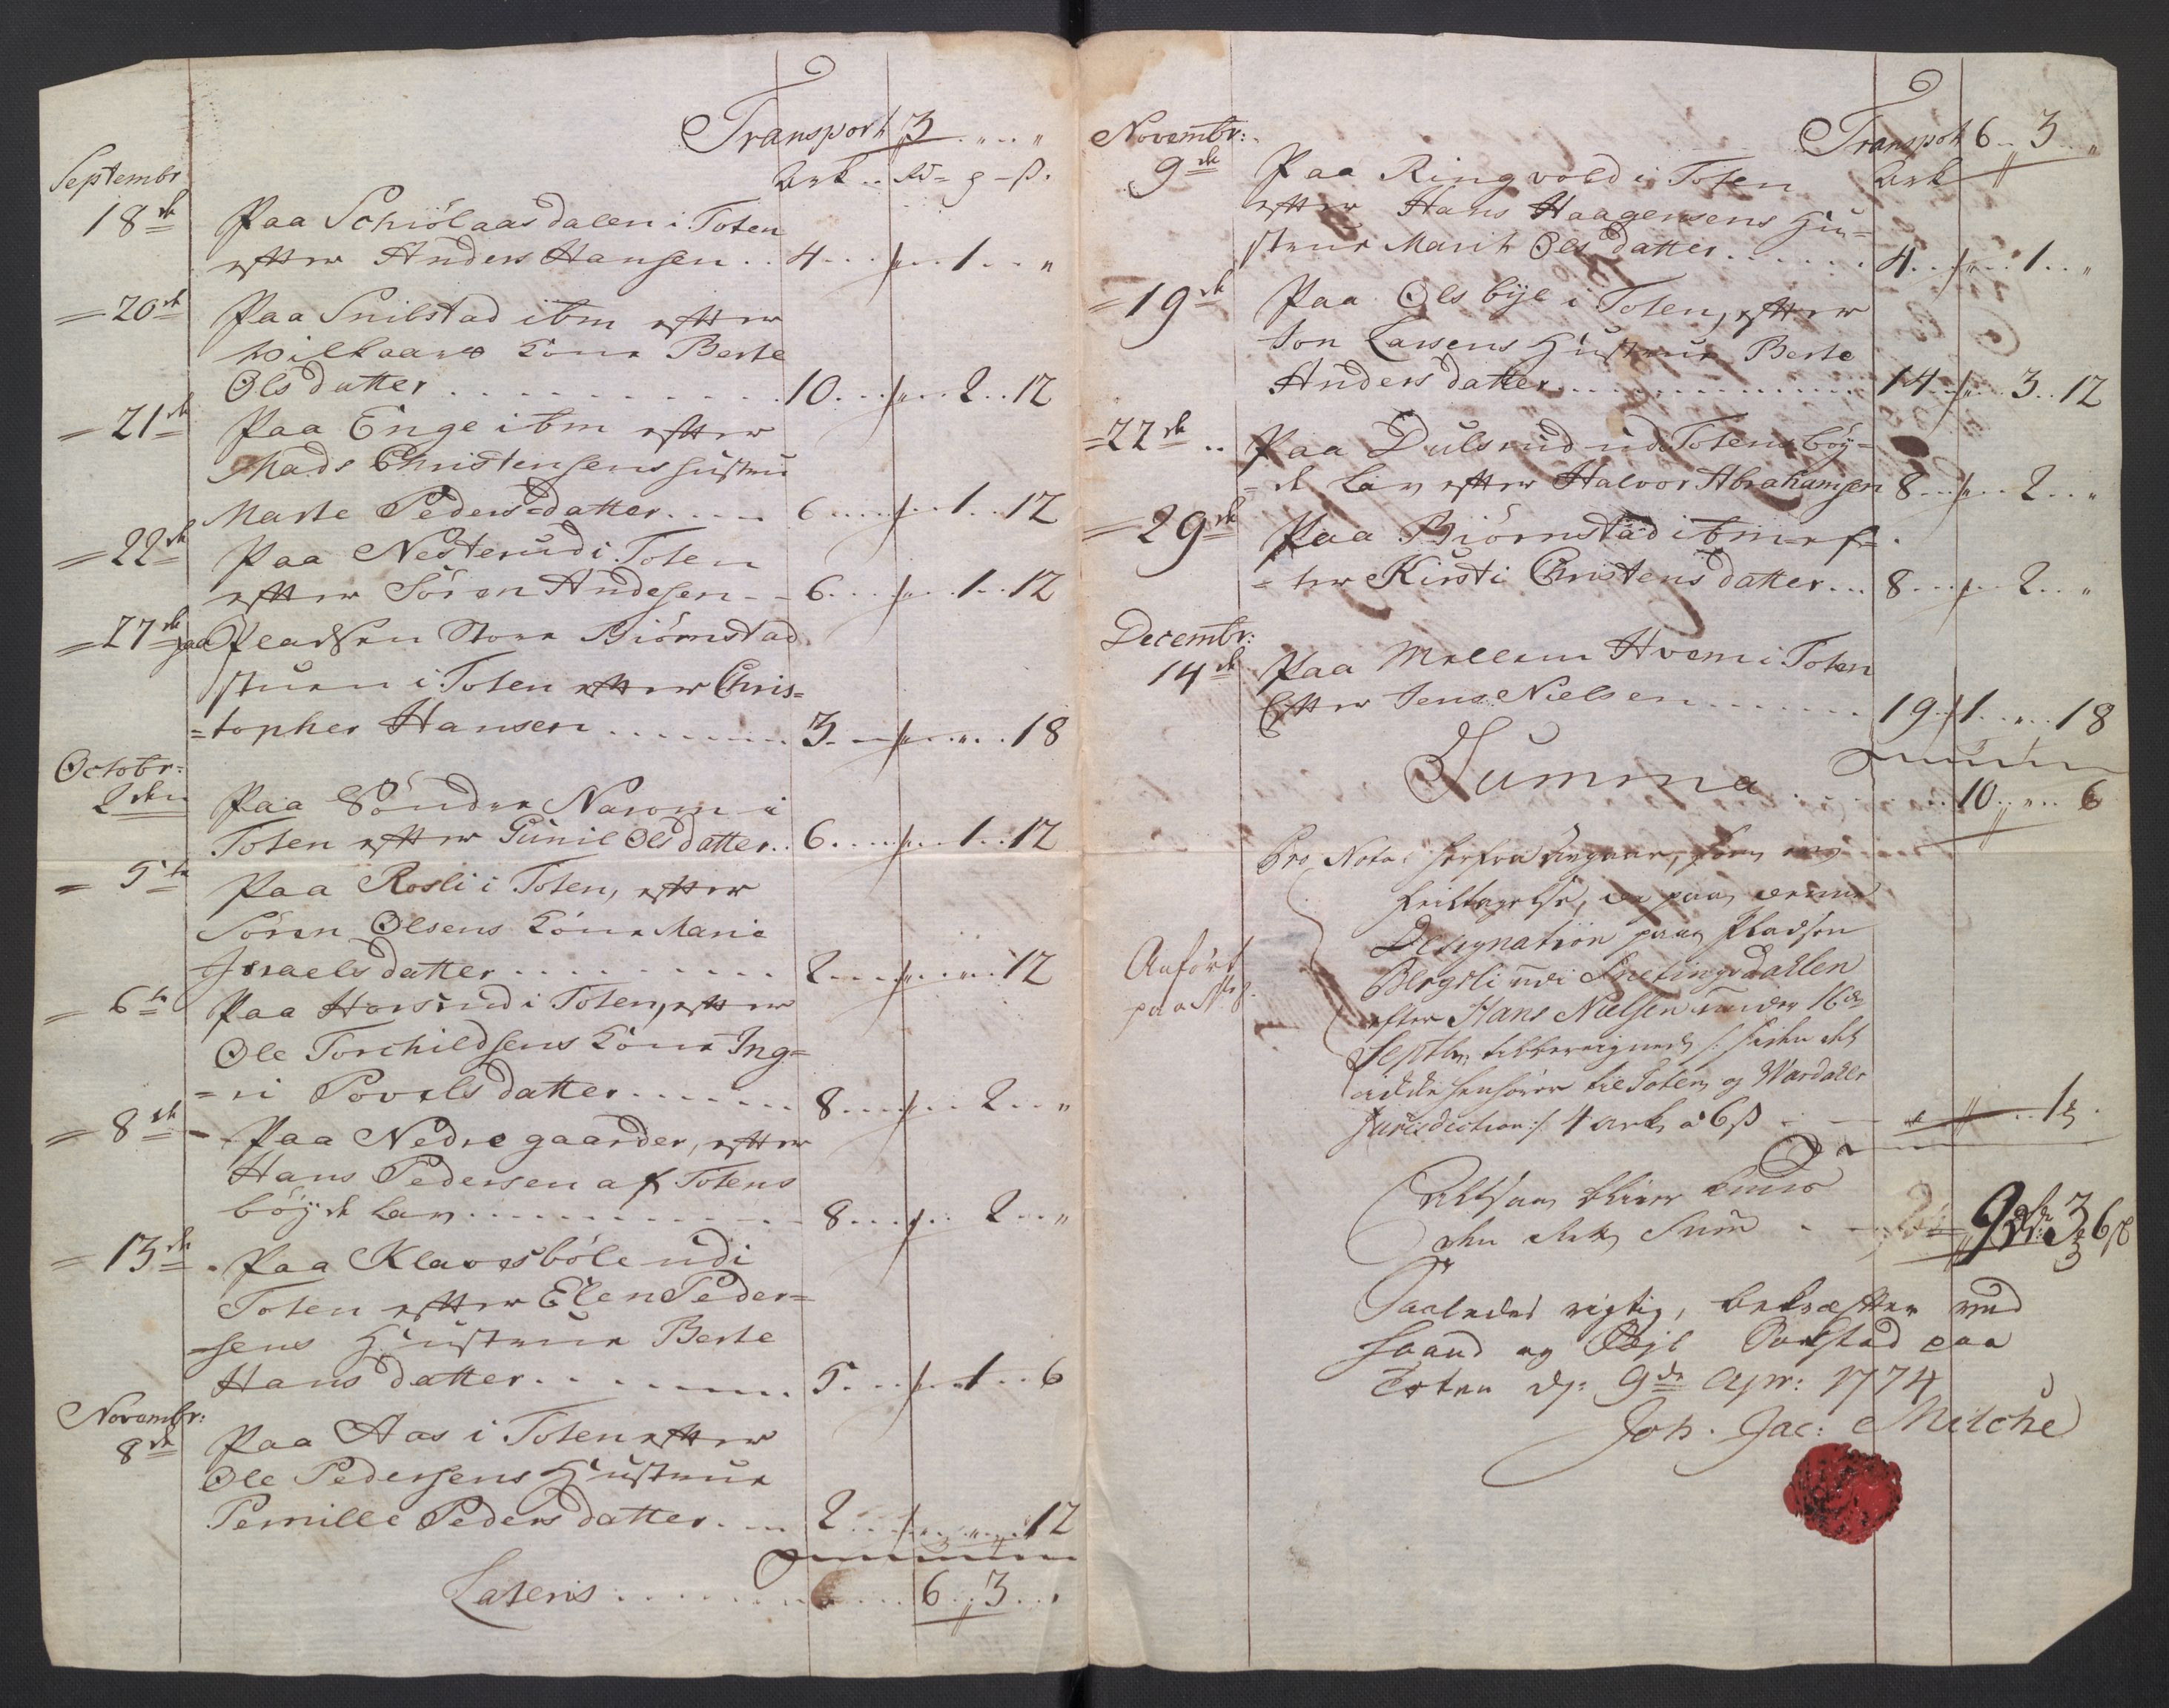 Transport 3 „ „
Septembr
Ark .. Rd - ȝ - ß.
18de Paa Schiölaasdalen i Toten
efter Anders Hansen .. 4 ... „ .. 1 .. „
= 20de Paa Snilstad ibm efter
Wilkaars Kone Berte
Olsdatter ........ 10 ... „ .. 2 .. 12
= 21de Paa Enge ibm efter
Mads Christensens Hustru
Marte Pedersdatter .... 6 ... „ .. 1 .. 12
= 22de Paa Nesterud i Toten
efter Sören Andesen - - 6 ... „ .. 1 .. 12
= 27de paa Pladsen Store Biörnstad
stuen i Toten efter Chris=
=topher Hansen ....... 3 ... „ .. „ .. 18
Octobr:
2den Paa Söndre Narom i
Toten efter Gunil Olsdatter .. 6 ... „ .. 1 .. 12
= 5te Paa Rosli i Toten, efter
Sören Olsens Kone Marie
Israelsdatter ......... 2 ... „ .. „ .. 12
= 6te Paa Horsrud i Toten, efter
Ole Torchildsens Kone Ing=
=ri Povelsdatter ....... 8 ... „ .. 2 .. „
= 8de - Paa Nedre gaarder, efter
Hans Pedersen af Totens
böyde Lav ......... 8 ... „ .. 2 .. „
= 13de . Paa Klavesböle udi
Toten efter Elen Peder=
=sens Hustrue Berte
Hansdatter ....... 5 ... „ .. 1 .. 6
Novembr:
8de Paa Aas i Toten efter
Ole Pedersens Hustrue
Pernille Pedersdatter .... 2 ... „ .. „ .. 12
Lateris ......... 6 .. 3 .. „
Transport 6 .. 3 .. „
Novembr:
Ark
9de Paa Ringvold i Toten
efter Hans Haagensens Hu=
strue Marit Olsdatter ...... 4 .. „ .. 1 .. „
= 19de Paa Olsbye i Toten, efter
Jon Larsens Hustrue Berte
Andersdatter ......... 14 .. „ .. 3 .. 12
= 22de .. Paa Dulsrud udi Totens böy=
=de Lav efter Halvor Abrahamsen 8 ... „ .. 2 .. „
= 29de Paa Biörnstad ibm ef=
=ter Kirsti Christensdatter ... 8 ... „ .. 2 .. „
Decembr:
14de Paa Mellem Hvem i Toten
Efter Jens Nielsen ....... 19 .. 1 .. „ .. 18
Summa ....... 10 .. „ .. 6
Pro Nota: herfra Afgaar, som en
feiltagelse, der paa denne
Designation paa Pladsen
Bergsli udi Snetingsdallen
efter Hans Nielsen under 16de
Septbr. tilberegned /: siden det
icke henhörer til Toten og Wardahls
Jurisdiction :/ 4 ark a 6 ß - - „ .. 1 ȝ.
Anført
paa No 8.
Altsaa bliver
den Summ - - 9 Rdr 3 ȝ 6 ß
Saaledes rigtig, bekræfter med
Haand og Segl paa
Toten d: 9de Apr: 1774
Joh. Jac: Mitche